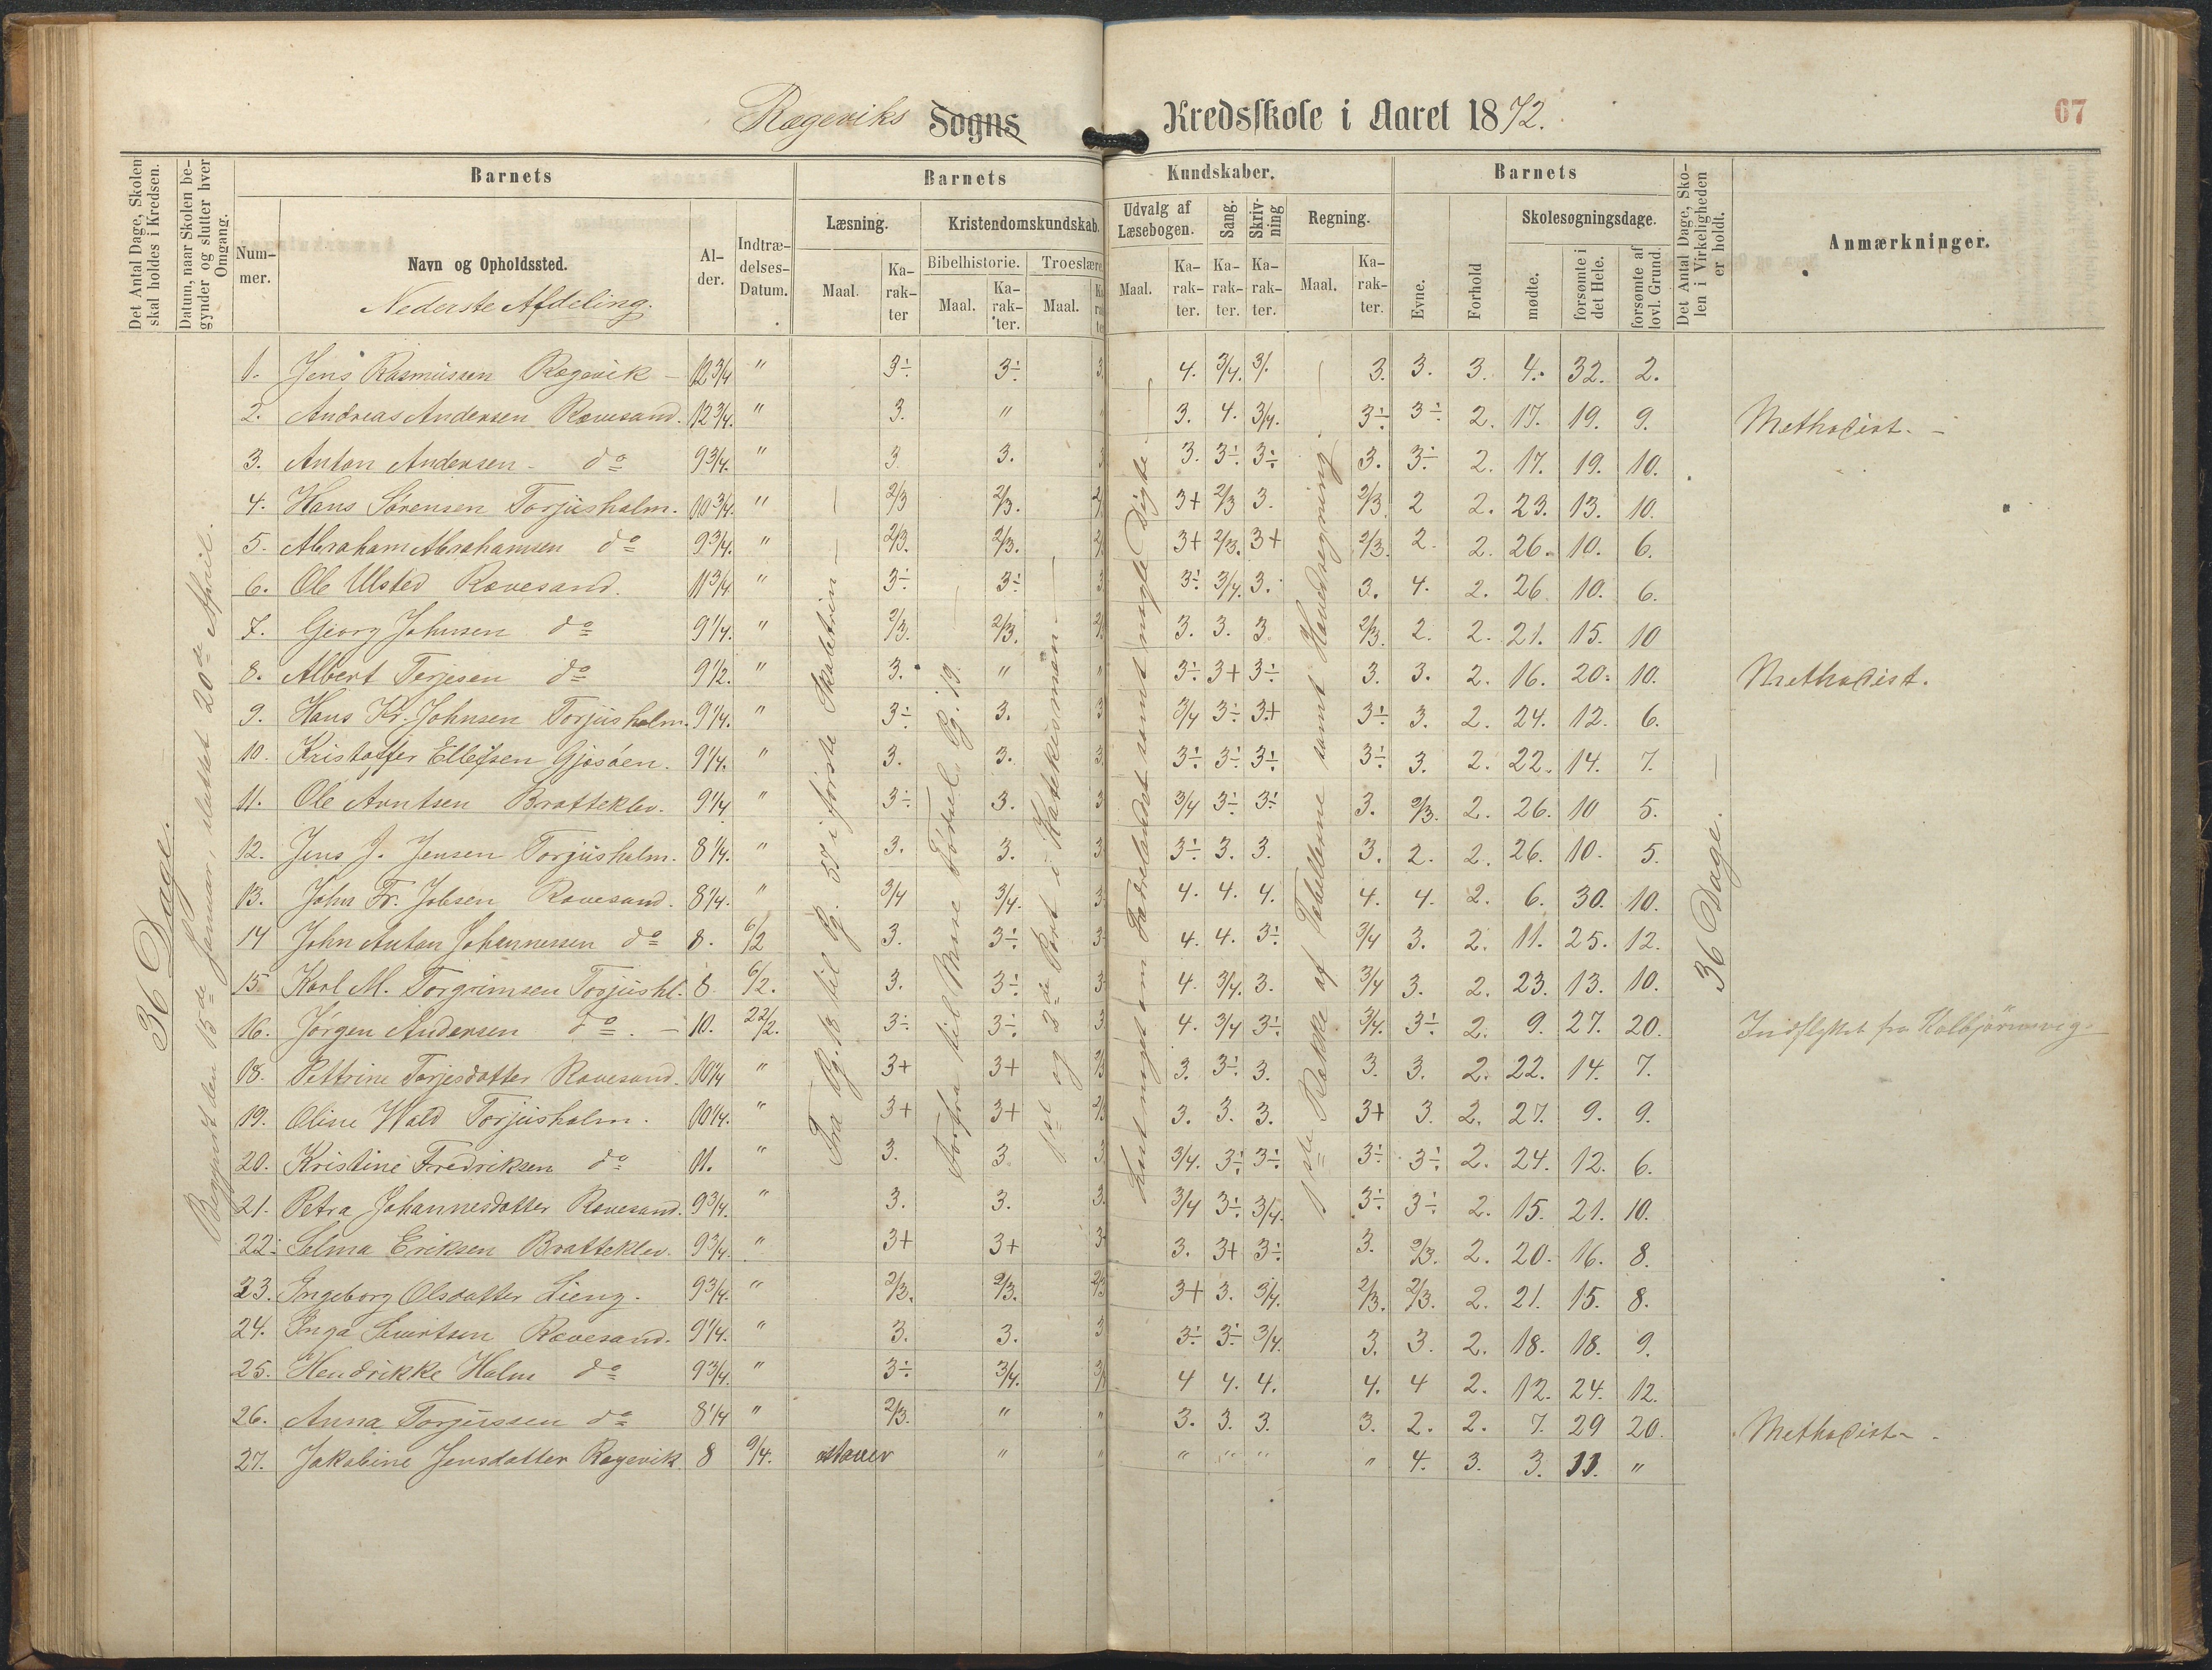 Rægeviks Sogns Kredsskole i Aaret 1872.
67
Det Antal Dage, Skolen skal holdes i Kredsen.
Datum, naar Skolen begynder og slutter hver Omgang.
Barnets
Barnets
Kundskaber.
Barnets
Det Antal Dage, Skolen i Virkeligheden er holdt.
Anmærkninger.
Nummer.
Navn og Opholdssted.
Nederste Afdeling.
Alder.
Indtrædelses-Datum.
Læsning.
Kristendomskundskab.
Udvalg af Læsebogen.
Sang.
Skrivning
Regning.
Evne.
Forhold
Skolesøgningsdage.
Bibelhistorie.
Troeslære.
Maal.
Karakter
Maal.
Karakter.
Maal.
Maal.
Karakter.
Karakter.
Karakter.
Maal.
Karakter.
mødte.
forsømte i det Hele.
forsømte af lovl. Grund.
36 Dage.
Begyndt den 15de Januar, sluttet 20de April.
Fra Pg. 18 til Pg. 57 i første Skoletrin —
Forfra til Mose Födsel Pg. 19.
1st og 2de Part i Katekismen —
Læst noget om Fædrelandet samt nogle Digte —
1ste Række af Tabellerne samt Hovedregning —
36 Dage. —
1. Jens Rasmussen Rægevik — 12 3/4 " 3÷ 3÷ 3. 4. 3/4. 3/. 3. 3. 3. 4. 32. 2.
2. Andreas Andersen Rævesand. 12 3/4. " 3. " " 3. 4. 3/4. 3÷ 3÷ 2. 17. 19. 9. Methodist. —
3. Anton Andersen - do 9 3/4. " 3. 3. 3 3. 3÷. 3÷ 3. 3÷ 2. 17. 19. 10.
4. Hans Sørensen Torjusholm. 10 3/4. " 2/3 2/3. 2/ 3+ 2/3 3. 2/3. 2 2. 23. 13. 10.
5. Abraham Abrahamsen do 9 3/4. " 2/3. 2/3. 2/ 3+ 2/3. 3+ 2/3. 2. 2. 26. 10. 6.
6. Ole Ulsted Rævesand. 11 3/4 " 3÷ 3÷ 3 3÷ 3/4. 3. 3. 4. 2. 26 10. 6.
7. Georg Johnsen do 9 1/4. " 2/3. 2/3. 2/ 3. 3. 3 2/3. 2. 2. 21. 15. 10
8. Albert Terjesen do 9 1/2. " 3. " " 3÷ 3+ 3÷ 3. 3. 2. 16. 20. 10. Methodist.
9. Hans Kr. Johnsen Torjusholm. 9 1/4. " 3÷ 3. 3 3/4 3÷ 3+ 3÷ 3. 2. 24. 12. 6.
10. Kristoffer Ellefsen Gjøsøen. 9 1/4. " 3. 3. 3. 3÷ 3÷ 3÷ 3÷ 3. 2. 22. 14. 7.
11. Ole Arntsen Bratteklev. 9 1/4 " 3÷ 3. 3 3/4 3÷ 3÷ 3. 2/3. 2. 26. 10 5.
12. Jens J. Jensen Torjusholm. 8 1/4. " 3. 3. 3 3÷ 3. 3. 3. 2. 2. 26. 10. 5.
13. John Fr. Jobsen Rævesand. 8 1/4. " 3/4 3/4. 3 4. 4. 4. 4. 4. 2. 6. 30. 10.
14 John Anton Johannessen do 8. 6/2 3. 3÷. 3 4. 4. 3÷ 3/4 3. 2. 11. 25. 12.
15 Karl M. Torgrimsen Torjushl. 8 6/2. 3. 3÷. 3 4. 3/4. 3. 3/4 3. 2. 23. 13. 10.
16. Jørgen Andersen do. — 10. 22/2. 3÷ 3÷ 3 4. 3/4 3÷ 3/4. 3÷ 2. 9. 27. 20. Indflyttet fra Kolbjörnsvig.
18. Pettrine Torjesdatter Rævesand. 10 1/4 " 3+ 3+ 2/3 3. 3÷ 3. 3. 3. 2. 22. 14. 7.
19. Oline Wald Torjusholm. 10 1/4. " 3+ 3+ 2/3 3. 3. 3. 3+ 3. 2. 27. 9. 9.
20. Kristine Fredriksen do 11. " 3. 3. 3. 3/4. 3÷ 3÷ 3÷ 3÷ 2. 24. 12. 6.
21. Petra Johannesdatter Rævesand. 9 3/4. " 3. 3. 3. 3/4 3÷ 3/4. 3÷ 3÷ 2. 15. 21. 10.
22. Selma Eriksen Bratteklev. 9 3/4. " 3+ 3+ 3 3. 3+ 3÷ 3. 2/3. 2. 20. 16. 8.
23. Ingeborg Olsdatter Lieng. 9 3/4. " 2/3. 2/3. 2/3 3+ 3. 3/4. 2/3. 2/3. 2. 21. 15. 8.
24. Inga Sivertsen Rævesand. 9 1/4. " 3. 3. 3 3÷ 3÷ 3/4. 3. 3. 2. 18. 18. 9.
25. Hendrikke Holm do 9 3/4. " 3÷ 3/4. 3/ 4 4. 4. 4. 4 2. 12. 24. 12.
26. Anna Torjussen do 8 1/4 " 2/3. " " 3. 3. 3. 3. 2. 2. 7. 29 20. Methodist —
27. Jakobine Jensdatter Rægevik. 8 9/4. staver " " " " " " 4. 3. 3. 33. "